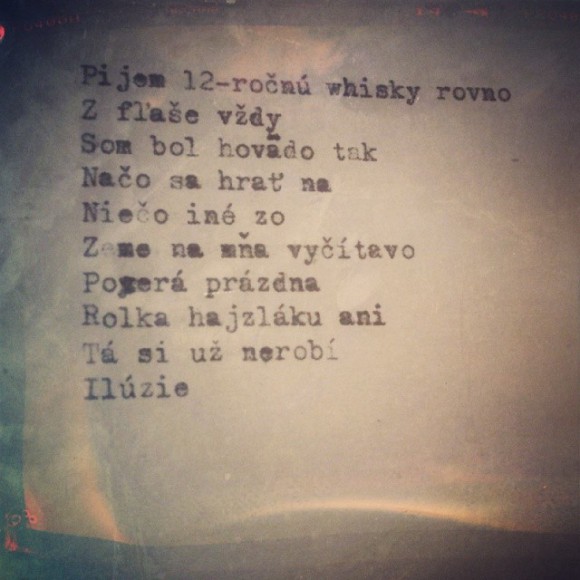 Pijem 12-ročnú whisky rovno
Z fľaše vždy
Som bol hovädo tak
Načo sa hrať na
Niečo iné zo
Zeme na mňa vyčítavo
Pozerá prázdna
Rolka hajzláku ani
Tá si už nerobí
Ilúzie